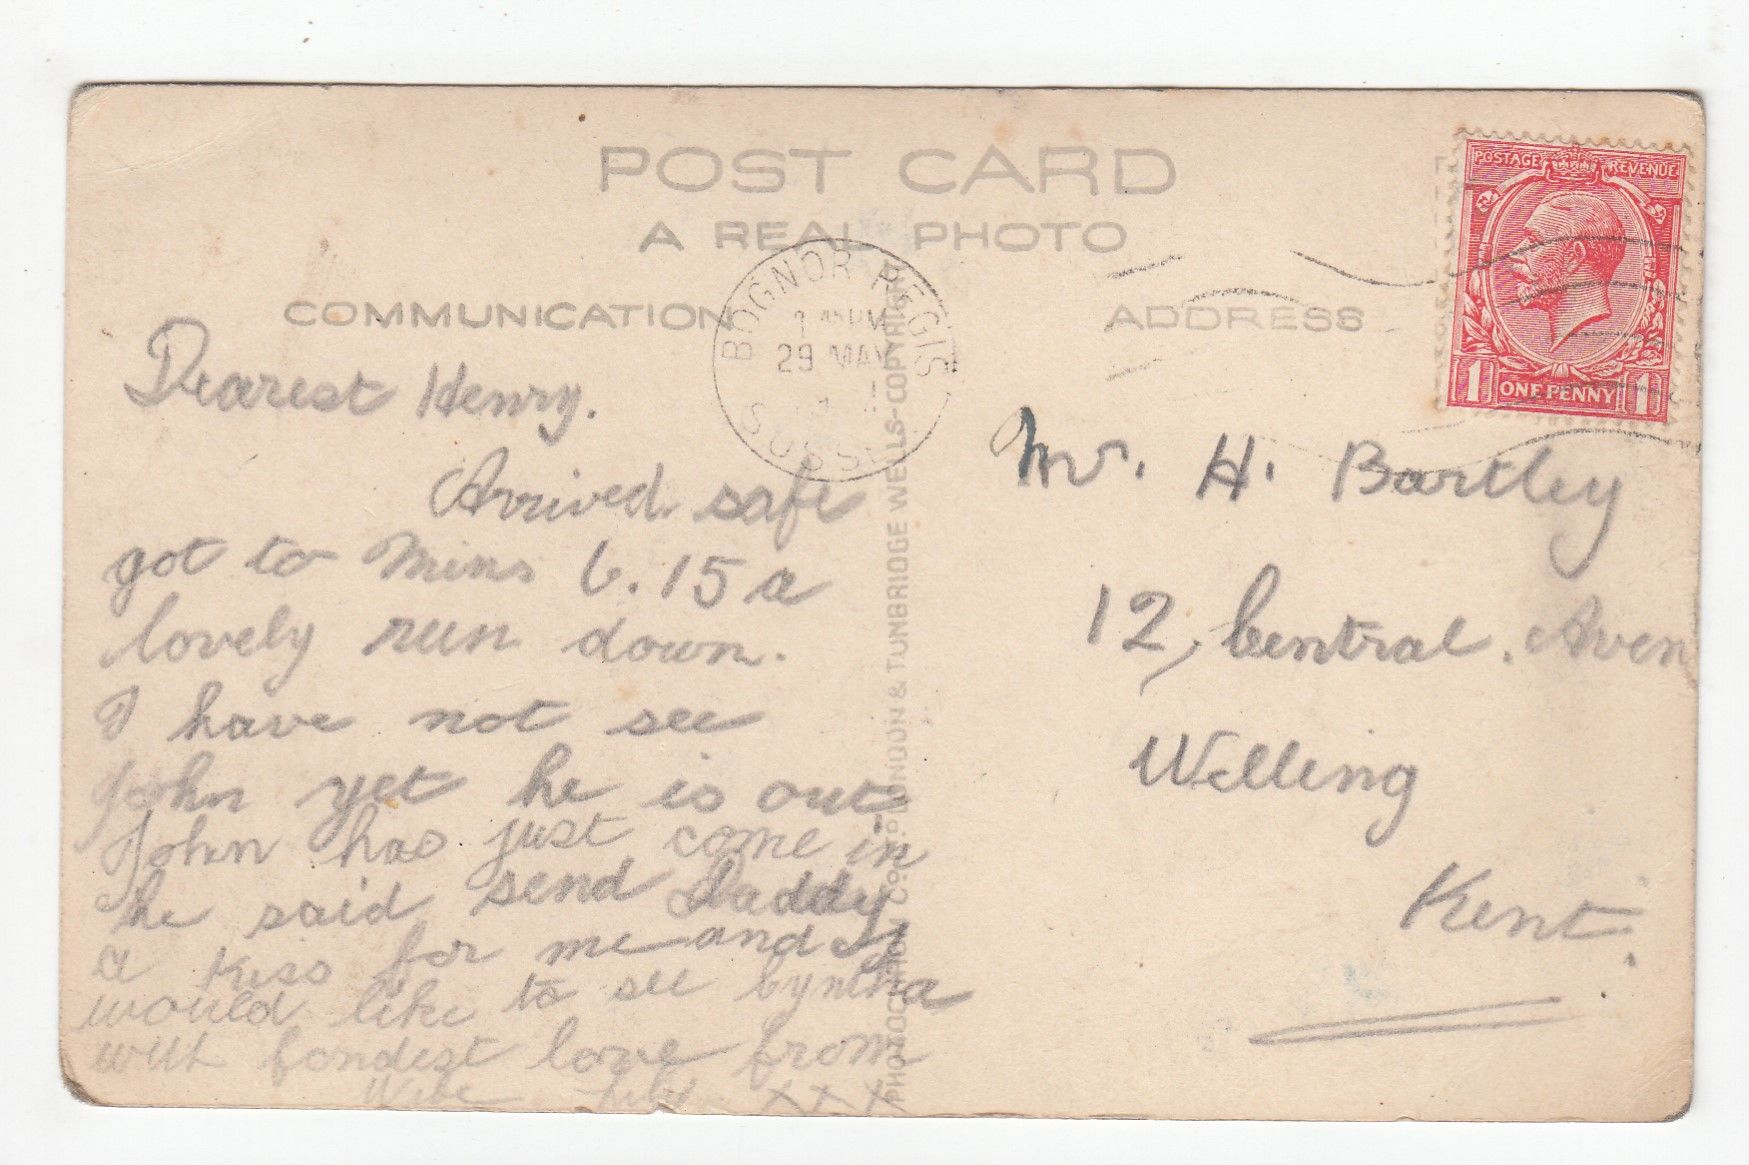 POST CARD
A REAL PHOTO
COMMUNICATION
ADDRESS
POSTAGE REVENUE
1 ONE PENNY 1
BOGNOR REGIS
29 MAY
SUSSEX
PHOTOCHROM CO. LTD. LONDON & TUNBRIDGE WELLS-COPYRIGHT
Dearest Henry.
Arrived safe
got to Mins 6.15 a
lovely run down.
I have not see
John yet he is out
John has just come in
he said send Daddy
a kiss for me and I
would like to see
with fondest love from
Wife XXX
Mr. H. Bartley
12, Central. Aven
Welling
Kent.